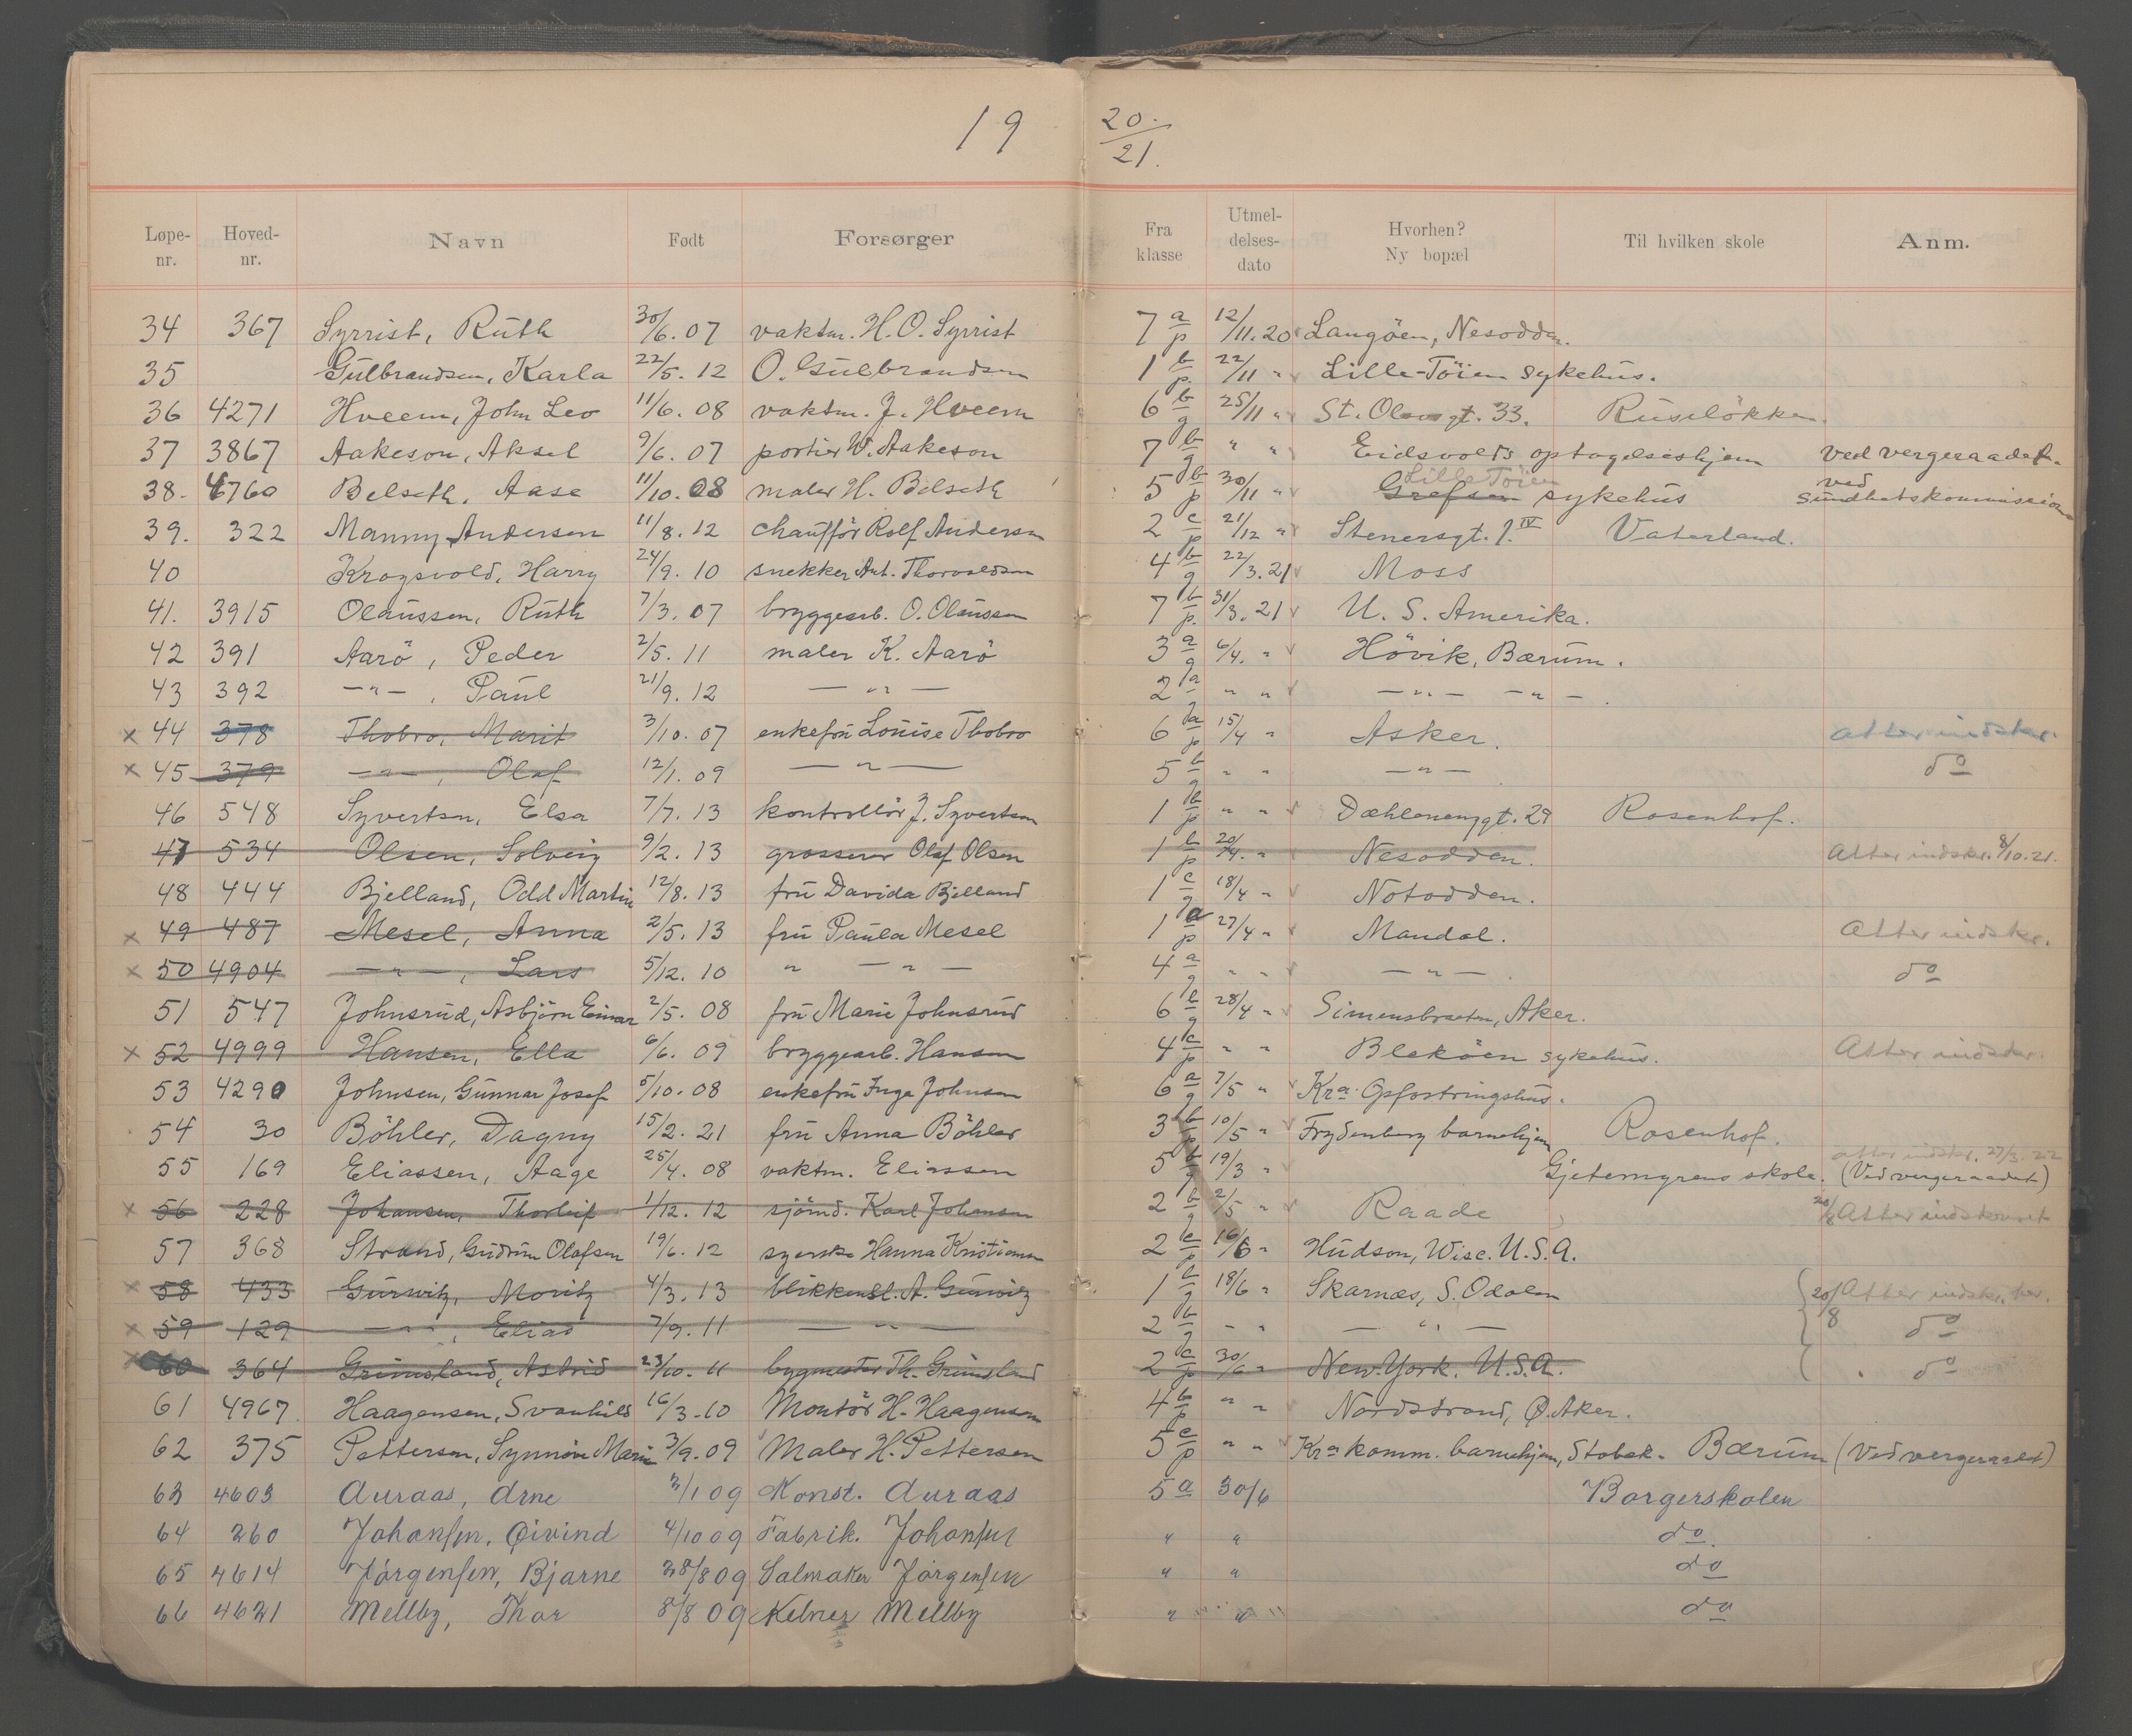 19 20/21.
Løpe-nr. Hoved-nr. Navn Født Forsørger Fra klasse Utmeldelses-dato Hvorhen? Ny bopæl Til hvilken skole Anm.
34 367 Syrrist, Ruth 30/6. 07 vaktm. H. O. Syrrist 7 a/p 12/11. 20 Langöen, Nesodden.
35 Gulbrandsen, Karla 22/5. 12 O. Gulbrandsen 1 b/p 22/11 " Lille-Töien sykehus.
36 4271 Hveem, John Leo 11/6. 08 vaktm. J. Hveem 6 b/g 25/11 " St. Olavsgt. 33. Ruseløkka.
37 3867 Aakeson, Aksel 9/6. 07 portier W. Aakeson 7 b/g " " Eidsvolds optagelseshjem Ved vergeraadet.
38. 4760 Belseth, Aase 11/10. 08 maler H. Belseth 5 b/p 30/11 " Grefsen Lille Töien sykehus ved Sundhetskommission
39. 322 Manny Andersen 11/8. 12 chauffør Rolf Andersen 2 c/p 21/12 " Stenersgt. 1. IV Vaterland.
40 Krogsvold, Harry 24/9. 10 snekker Ant. Thorvaldsen 4 b/g 22/3. 21 Moss
41. 3915 Olaussen, Ruth 7/3. 07 bryggearb. O. Olaussen 7 b/p. 31/3. 21 U. S. Amerika.
42 391 Aarö, Peder 2/5. 11 maler K. Aarö 3 a/g 6/4. " Hövik, Bærum.
43 392 — " — , Paul 21/9. 12 — " — 2 a/g " " — " — — " —
× 44 378 Thobro, Marit 3/10. 07 enkefru Louise Thobro 6 a/p 15/4 " Asker. Atter indskr.
× 45 379 — " — , Olaf 12/1. 09 — " — 5 b/g " " — " — do
46 548 Syvertsen, Elsa 7/7. 13 kontrollör J. Syvertsen 1 b/p " " Dæhlenenggt. 29 Rosenhof.
47 534 Olsen, Solveig 9/2. 13 grosserer Olaf Olsen 1 b/p 20/4. " Nesodden. Atter indskr. 8/10. 21.
48 444 Bjelland, Odd Martin 12/8. 13 fru Davida Bjelland 1 c/g 18/4 " Notodden.
× 49 487 Mesel, Anna 2/5. 13 fru Paula Mesel 1 a/p 27/4 " Mandal. Atter indskr.
× 50 4904 — " — , Lars 5/12. 10 " — " — 4 a/g " " — " — . do
51 547 Johnsrud, Asbjörn Einar 2/5. 08 fru Marie Johnsrud 6 b/g 28/4 " Simensbraaten, Aker.
× 52 4999 Hansen, Ella 6/6. 09 bryggearb. Hansen 4 c/p " " Blekøen sykehus. Atter indskr.
53 4290 Johnsen, Gunnar Josef 5/10. 08 enkefru Inga Johnsen 6 a/g 7/5 " Kra. Opfostringshus.
54 30 Böhler, Dagny 15/2. 21 fru Anna Böhler 3 b/p 10/5 " Frydenberg barnehjem Rosenhof.
55 169 Eliassen, Aage 25/4. 08 vaktm. Eliassen 5 b/g 19/3 " Gjetemyrens skole. atter indskr. 27/3. 22 (Ved vergeraadet)
× 56 228 Johansen, Thorleif 1/12. 12 sjömd. Karl Johansen 2 b/g 2/5 " Raade 20/8 Atter indskrevet
57 368 Strand, Gudrun Olafsen 19/6. 12 syerske Hanna Kristiansen 2 c/p 16/6 " Hudson, Wisc. U.S.A.
× 58 433 Gurwitz, Moritz 4/3. 13 blikkensl. A. Gurwitz 1 b/g 18/6 " Skarnæs, S. Odalen 20/8 Atter indskr. her.
× 59 129 — " — , Elias 7/9. 11 — " — 2 b/g " " — " — do
× 60 364 Grimsland, Astrid 23/10. 11 bygmester Th. Grimsland 2 c/p 30/6 " New-York. U.S.A. do
61 4967 Haagensen, Svanhild 16/3. 10 Montör H. Haagensen 4 b/p " " Nordstrand, Ø. Aker.
62 375 Pettersen, Synnöve Marie 3/9. 09 Maler H. Pettersen 5 c/p " " Kra komm. barnehjem, Stabek. Bærum (Ved vergeraadet)
63 4603 Auraas, Arne 3/1 09 Konst. Auraas 5 a 30/6 Borgerskolen
64 260 Johansen, Øivind 4/10 09 Fabrik. Johansen " " do.
65 4614 Jörgensen, Bjarne 28/8 09 Salmaker Jörgensen " " do
66 4621 Mellby, Thor 8/8 09 Kelner Mellby " " do